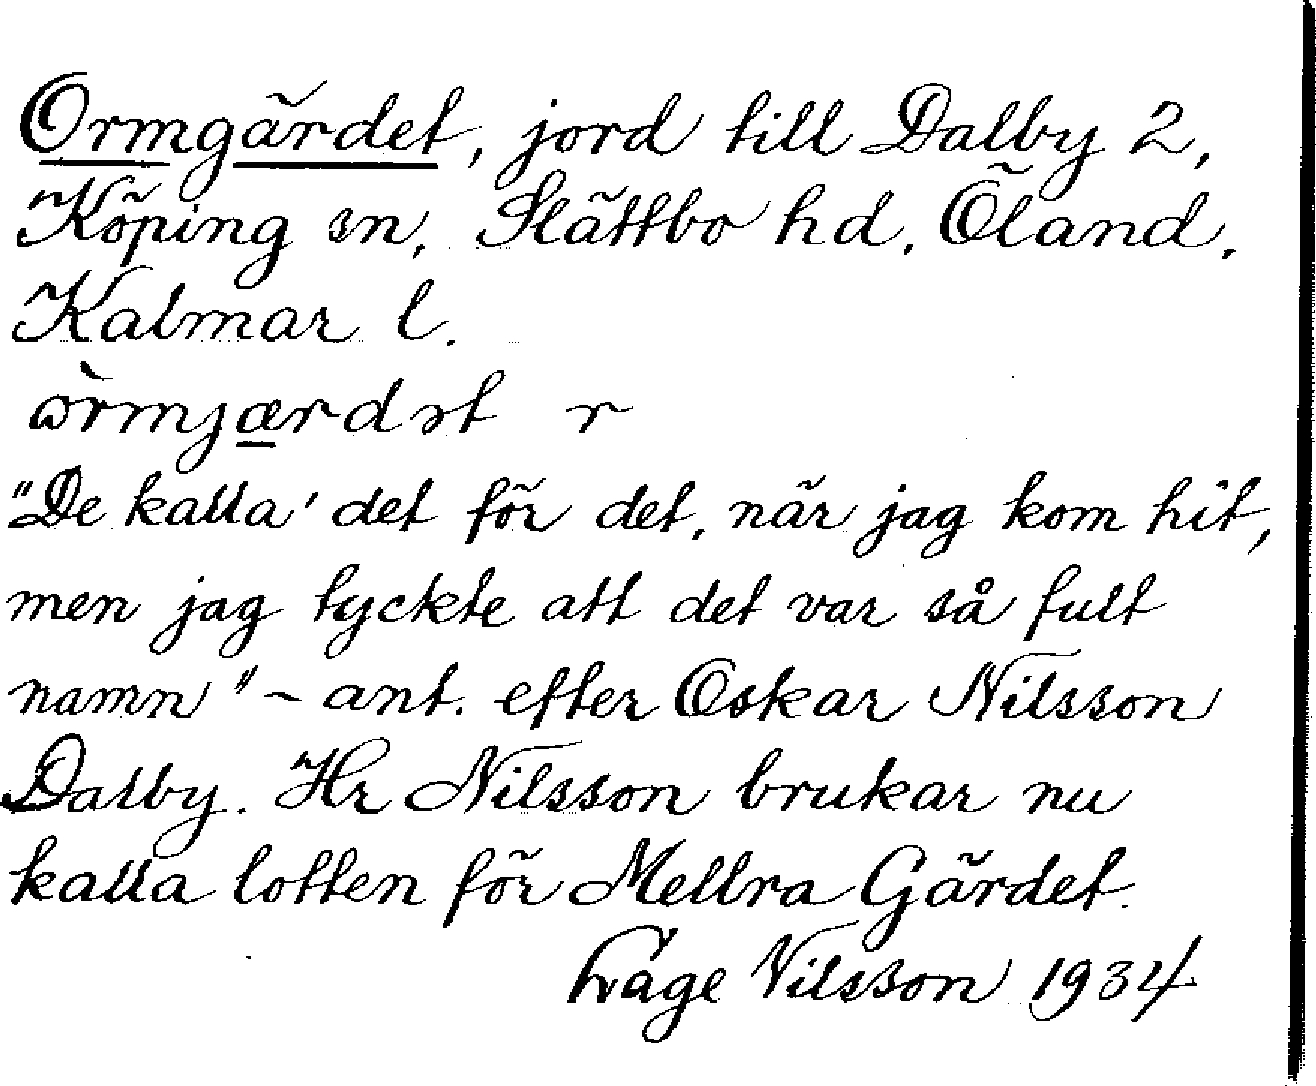 Ormgärdet, jord till Dalby 2,
Köping sn, Slättbo hd, Öland,
Kalmar l.
ɷ̀rmjærdət r
"De kalla' det för det, när jag kom hit,
men jag tyckte att det var så fult
namn" – ant. efter Oskar Nilsson
Dalby. Hr Nilsson brukar nu
kalla lotten för Mellra Gärdet.
Nilsson 1934